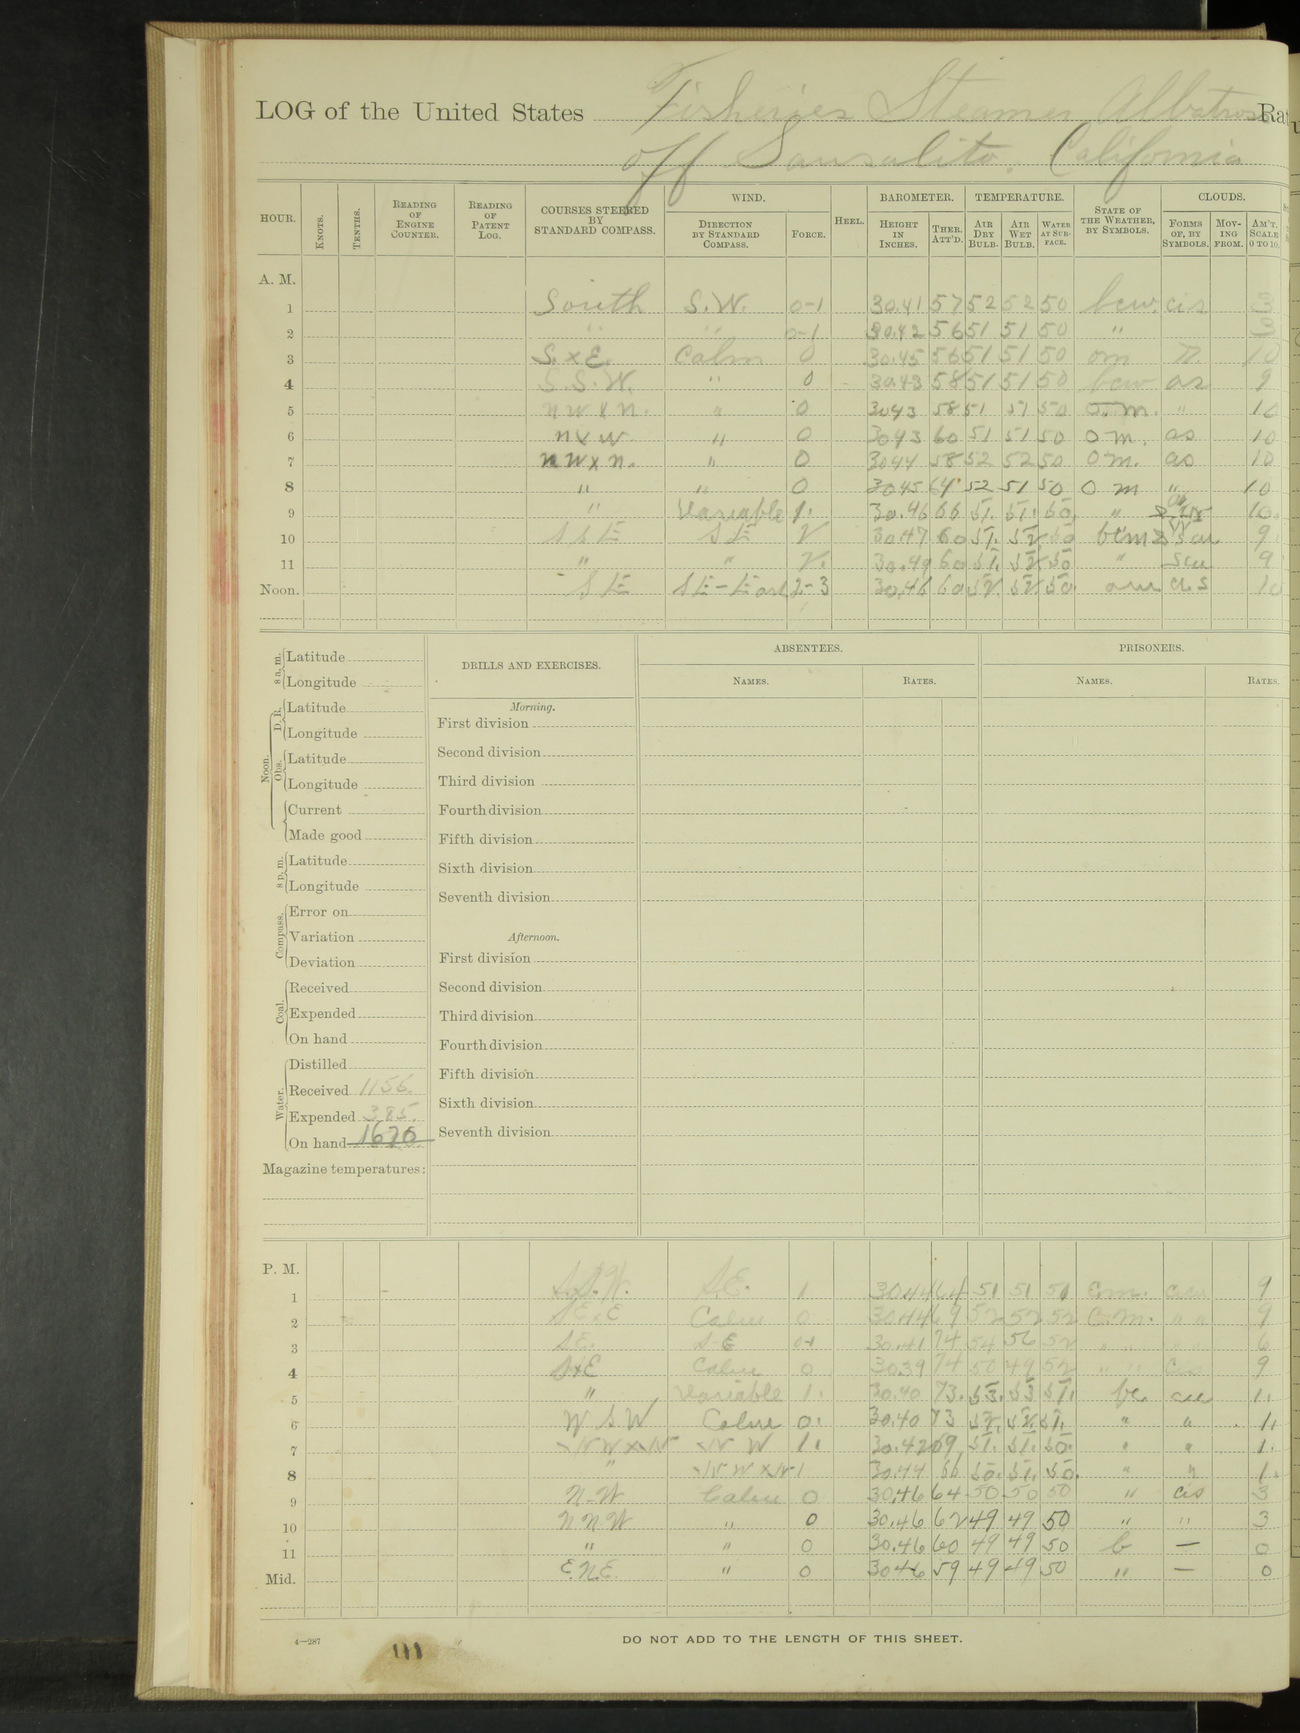 LOG of the United States Fisheries Steamer Albatross Ra
off Sausalito, California
HOUR. KNOTS. TENTHS. READING OF ENGINE COUNTER. READING OF PATENT LOG. COURSES STEERED BY STANDARD COMPASS. WIND. DIRECTION BY STANDARD COMPASS. FORCE. HEEL. BAROMETER. HEIGHT IN INCHES. THER. ATT'D. TEMPERATURE. AIR DRY BULB. AIR WET BULB. WATER AT SURFACE. STATE OF THE WEATHER, BY SYMBOLS. CLOUDS. FORMS OF, BY SYMBOLS. MOVING FROM. AM'T. SCALE 0 TO 10.
A. M.
1 South S.W. 0-1 30.41 57 52 52 50 bcw. cis 3
2 " " 0-1 30.42 56 51 51 50 " 3
3 S.xE. Calm 0 30.45 56 51 51 50 om 10
4 S.S.W. " 0 30.43 58 51 51 50 bcw as 9
5 nwxn. " 0 3043 58 51 51 50 o.m. " 10
6 nxw. " 0 3043 60 51 51 50 om. as 10
7 nwxn. " 0 3044 58 52 52 50 om. as 10
8 " " 0 3045 64 52 51 50 o m " 10
9 " Variable 1. 30.46 66 51. 51. 50. " 10.
10 SSE SE 30.47 60 51. 52 50 9.
11 " " 30.49 60 51. 52 50 " scu 9
Noon. SE SE-East 2-3 30.46 60 52. 52 50. 10
8 a. m. Latitude
Longitude
Noon. D. R. Latitude
Longitude
Obs. Latitude
Longitude
Current
Made good
8 p. m. Latitude
Longitude
Compass. Error on
Variation
Deviation
Coal. Received
Expended
On hand
Water. Distilled
Received 1156.
Expended 385.
On hand 1670
Magazine temperatures:
DRILLS AND EXERCISES.
Morning.
First division
Second division
Third division
Fourth division
Fifth division
Sixth division
Seventh division
Afternoon.
First division
Second division
Third division
Fourth division
Fifth division
Sixth division
Seventh division
ABSENTEES.
NAMES. RATES.
PRISONERS.
NAMES. RATES.
P. M.
1 S.S.W. S.E. 1 30.44 64 51 51 51 cm. cu 9
2 SExE Calm 0 30.44 69 52 52 52 c.m. " " 9
3 SE. S-E 0-1 30.41 74 54 56 52 " " 6
4 SxE Calm 0 30.39 74 50 49 52 " " 9
5 " Variable 1. 30.40 73. 53. 53 51. bc. cu 1.
6 WSW Calm 0. 30.40 73 52. 52. 51. " " 1.
7 NWxW NW 1. 30.42 69 51. 51. 50. " " 1.
8 " NWxN 1 30.44 66 50. 51. 50. " " 1.
9 N-W Calm 0 30.46 64 50 50 50 " cis 3
10 NNW " 0 30.46 62 49 49 50 " " 3
11 " " 0 30.46 60 49 49 50 b — 0
Mid. E.N.E. " 0 3046 59 49 49 50 " — 0
4—287
DO NOT ADD TO THE LENGTH OF THIS SHEET.